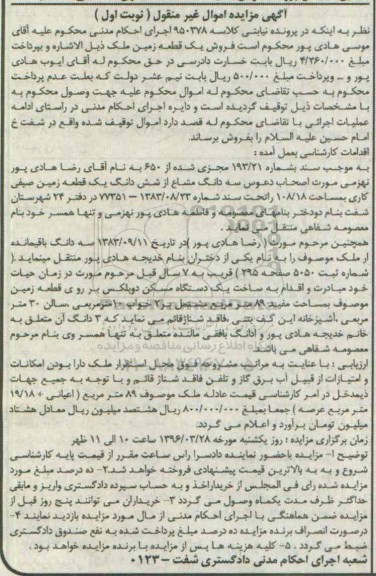 آگهی مزایده اموال غیر منقول ( نوبت اول )
نظر به اینکه در پرونده نیابتی کلاسه ۹۵۰۳۷۸ اجرای احکام مدنی محکوم علیه آقای
موسی هادی پور محکوم است فروش یک قطعه زمین ملک ذیل الاشاره و بپرداخت
مبلغ ۴/۳۶۰/۰۰۰ ریال بابت خسارت دادرسی در حق محکوم له آقای ایوب هادی
پور و .. وپرداخت مبلغ ۵۰۰/۰۰۰ ریال بابت نیم عشر دولت که بعلت عدم پرداخت
محکوم به حسب تقاضای محکوم له اموال محکوم علیه جهت وصول محکوم به
با مشخصات ذیل توقیف گردیده است و دایره اجرای احکام مدنی در راستای ادامه
عملیات اجرائی با تقاضای محکوم له قصد دارد اموال توقیف شده واقع در شفت خ
امام حسین علیه السلام را بفروش برساند.
اقدامات کارشناسی بعمل آمده :
به موجب سند بشماره ۱۹۳/۲۱ مجزی شده از ۶۵۰ به نام آقای رضا هادی پور
نهزمی مورث اصحاب دعوی سه دانگ مشاع از شش دانگ یک قطعه زمین صیفی
کاری بمساحت ۱۰۸/۱۸ راتحت سند شماره ۱۳۸۳/۰۸/۲۳ – ۷۷۳۵۱ در دفتر ۲۴ شهرستان
شفت بنام دودختر بنامهای معصومه و فاطمه هادی پور نهزمی و تنها همسر خود بنام
معصومه شفاهی منتقل می نماید .
همچنین مرحوم مورث ( رضا هادی پور )در تاریخ ۱۳۸۳/۰۹/۱۱ سه دانگ باقیمانده
از ملک موصوف را به نام یکی از دختران بنام خدیجه هادی پور منتقل مینماید .(
شماره ثبت ۵۰۵۰ صفحه ۲۹۵ ) قریب به ۷ سال قبل مرحوم مورث در زمان حیات
خود مبادرت و اقدام به ساخت یک دستگاه مسکن دوبلکس بر روی قطعه زمین
موصوف بمساحت مفید ۸۹ متر مربع مشتمل بر۲ خواب ۱۰مترمربعی ،سالن ۳۰ متر
مربعی ،آشپزخانه این کف بتنی ،فاقد شناژقائم می نماید که ۳ دانگ آن متعلق به
خانم خدیجه هادی پور و ۳دانگ باقی مانده متعلق به تنها همسر وی بنام مرحوم
معصومه شفاهی می باشد.
ارزیابی : با عنایت به مراتب مشروحه فوق محل استقرار ملک دارا بودن امکانات
و امتیازات از قبیل آب برق گاز و تلفن فاقد شناژ قائم و با توجه به جمیع جهات
ذیمدخل در امر کارشناسی قیمت عادله ملک موصوف ۸۹ متر مربع ( اعیانی + ۱۹/۱۸
متر مربع عرصه ) جمعا بمبلغ ۸۰۰/۰۰۰/۰۰۰ ریال هشتصد میلیون ریال معادل هشتاد
میلیون تومان برآورد و اعلام می گردد.
زمان برگزاری مزایده : روز یکشنبه مورخه ۱۳۹۶/۰۳/۲۸ ساعت ۱۰ الی ۱۱ ظهر
توضیح ۱- مزایده باحضور نماینده دادسرا راس ساعت مقرر از قیمت پایه کارشناسی
شروع و به به بالاترین قیمت پیشنهادی فروخته خواهد شد.۲- ده درصد مبلغ مورد
مزایده شده رای فی المجلس از خریداراخذ و به حساب سپرده دادگستری واریز و مابقی
حداکثر ظرف مدت یکماه وصول می گردد ۳- خریداران می توانند پنج روز قبل از
مزایده ضمن هماهنگی با اجرای احکام مدنی از مال مورد مزایده بازدید نمایند ۴-
درصورت انصراف برنده مزایده ده درصد مبلغ پرداخت شده به نفع صندوق دادگستری
ضبط می گردد . ۵- کلیه هزینه ها پس از مزایده با برنده مزایده خواهد بود .
شعبه اجرای احکام مدنی دادگستری شفت – ۰۱۲۳